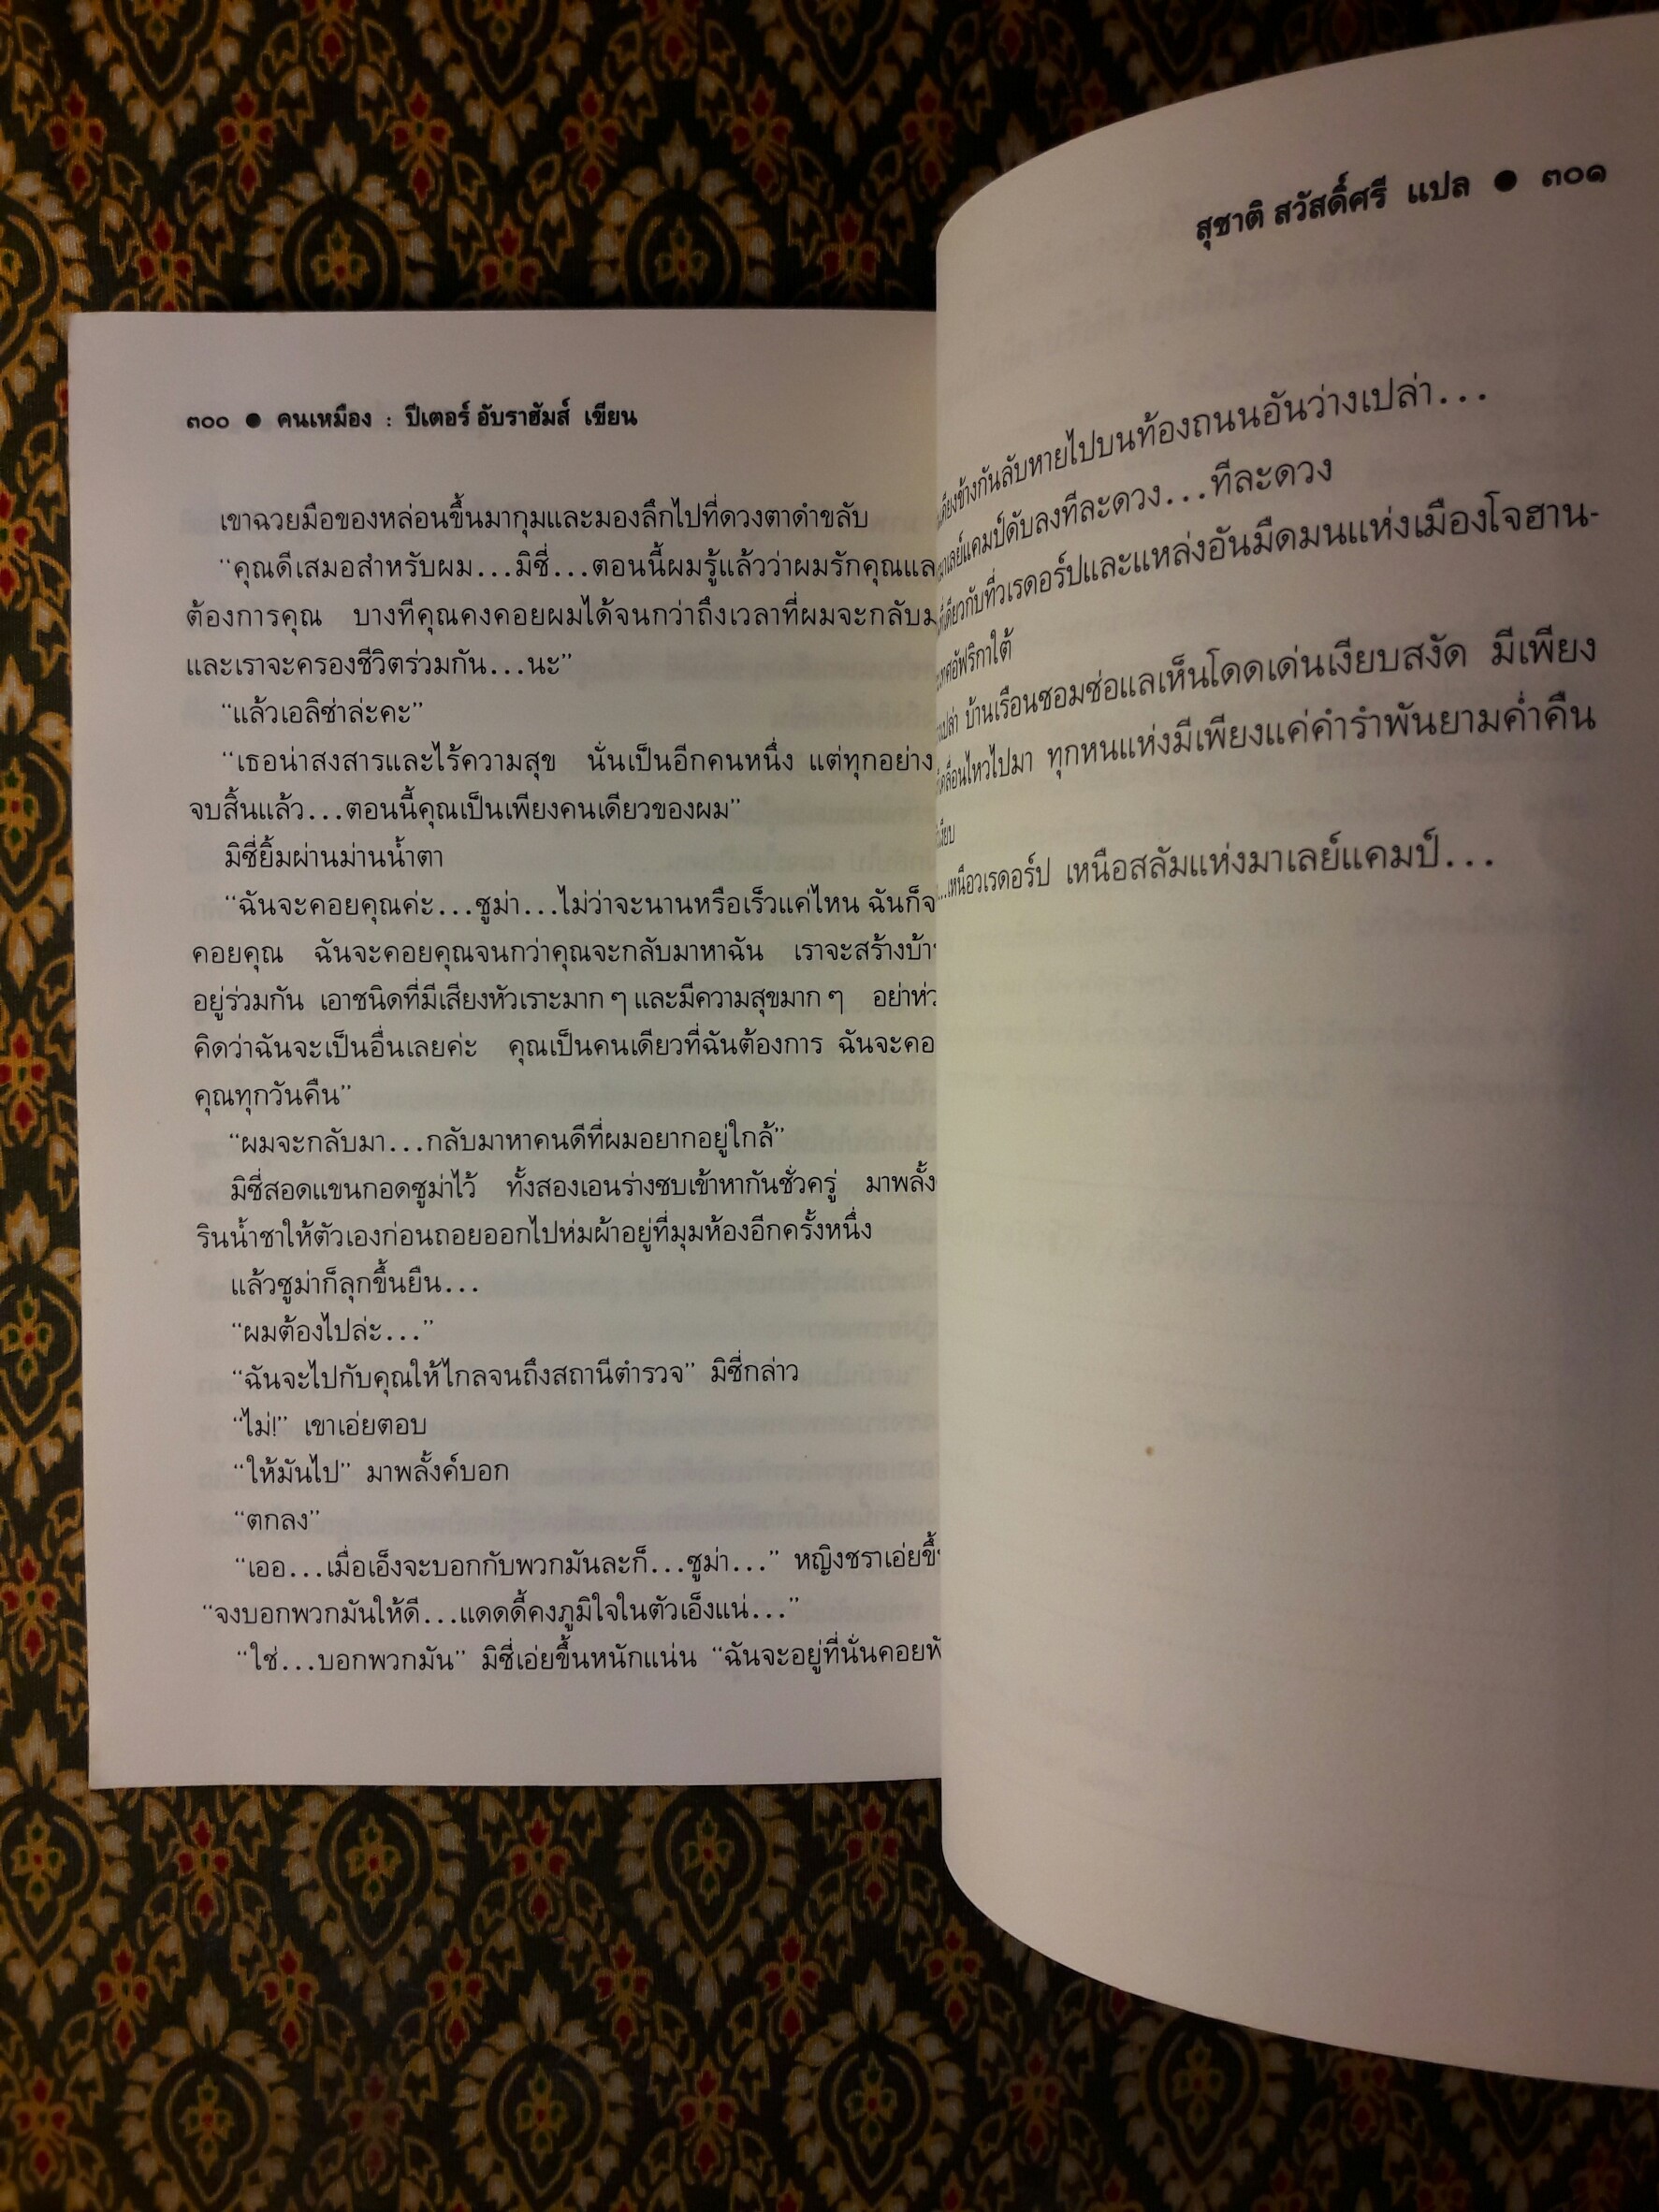 ๓๐๐ ● คนเหมือง : ปีเตอร์ อับราฮัมส์ เขียน
เขาฉวยมือของหล่อนขึ้นมากุมและมองลึกไปที่ดวงตาดำขลับ
“คุณดีเสมอสำหรับผม...มิซี่...ตอนนี้ผมรู้แล้วว่าผมรักคุณแล
ต้องการคุณ บางทีคุณคงคอยผมได้จนกว่าถึงเวลาที่ผมจะกลับม
และเราจะครองชีวิตร่วมกัน...นะ”
“แล้วเอลิซ่าล่ะคะ”
“เธอน่าสงสารและไร้ความสุข นั่นเป็นอีกคนหนึ่ง แต่ทุกอย่าง
จบสิ้นแล้ว...ตอนนี้คุณเป็นเพียงคนเดียวของผม”
มิซี่ยิ้มผ่านม่านน้ำตา
“ฉันจะคอยคุณค่ะ...ซูม่า...ไม่ว่าจะนานหรือเร็วแค่ไหน ฉันก็จ
คอยคุณ ฉันจะคอยคุณจนกว่าคุณจะกลับมาหาฉัน เราจะสร้างบ้า
อยู่ร่วมกัน เอาชนิดที่มีเสียงหัวเราะมาก ๆ และมีความสุขมาก ๆ อย่าห่ว
คิดว่าฉันจะเป็นอื่นเลยค่ะ คุณเป็นคนเดียวที่ฉันต้องการ ฉันจะคอ
คุณทุกวันคืน”
“ผมจะกลับมา...กลับมาหาคนดีที่ผมอยากอยู่ใกล้”
มิซี่สอดแขนกอดซูม่าไว้ ทั้งสองเอนร่างซบเข้าหากันชั่วครู่ มาพลั้ง
รินน้ำชาให้ตัวเองก่อนถอยออกไปห่มผ้าอยู่ที่มุมห้องอีกครั้งหนึ่ง
แล้วซูม่าก็ลุกขึ้นยืน...
“ผมต้องไปล่ะ...”
“ฉันจะไปกับคุณให้ไกลจนถึงสถานีตำรวจ” มิซี่กล่าว
“ไม่!” เขาเอ่ยตอบ
“ให้มันไป” มาพลั้งค์บอก
“ตกลง”
“เออ...เมื่อเอ็งจะบอกกับพวกมันละก็...ซูม่า...” หญิงชราเอ่ยขึ้
“จงบอกพวกมันให้ดี...แดดดี้คงภูมิใจในตัวเอ็งแน่...”
“ใช่...บอกพวกมัน” มิซี่เอ่ยขึ้นหนักแน่น “ฉันจะอยู่ที่นั่นคอยฟั
สุชาติ สวัสดิ์ศรี แปล ● ๓๐๑
เคียงข้างกันลับหายไปบนท้องถนนอันว่างเปล่า...
าเลย์แคมป์ดับลงทีละดวง...ทีละดวง
เดียวกับที่วเรดอร์ปและแหล่งอันมืดมนแห่งเมืองโจฮาน-
ทศอัฟริกาใต้
เปล่า บ้านเรือนซอมซ่อแลเห็นโดดเด่นเงียบสงัด มีเพียง
เคลื่อนไหวไปมา ทุกหนแห่งมีเพียงแค่คำรำพันยามค่ำคืน
เงียบ
...เหนือวเรดอร์ป เหนือสลัมแห่งมาเลย์แคมป์...